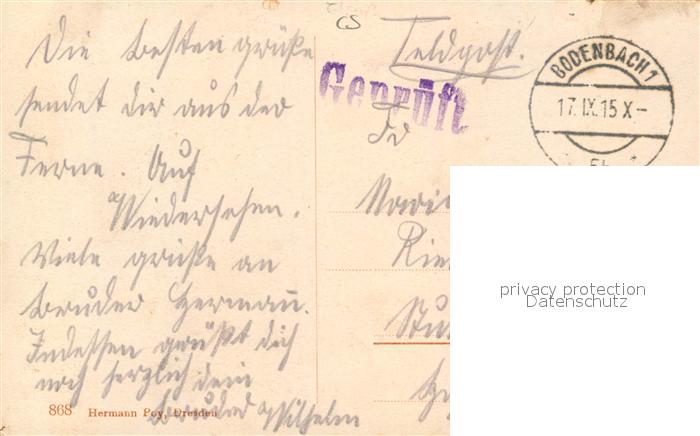 CS
Die besten grüße
sendet dir aus der
Ferne. Auf
Wiedersehen.
Viele grüße an
Bruder Hermann.
Indessen grüßt dich
noch herzlich dein
Bruder Wilhelm
868 Hermann Poy, Dresden
Feldpost.
Geprüft
BODENBACH 1
17.IX.15 X-
5b
privacy protection
Datenschutz